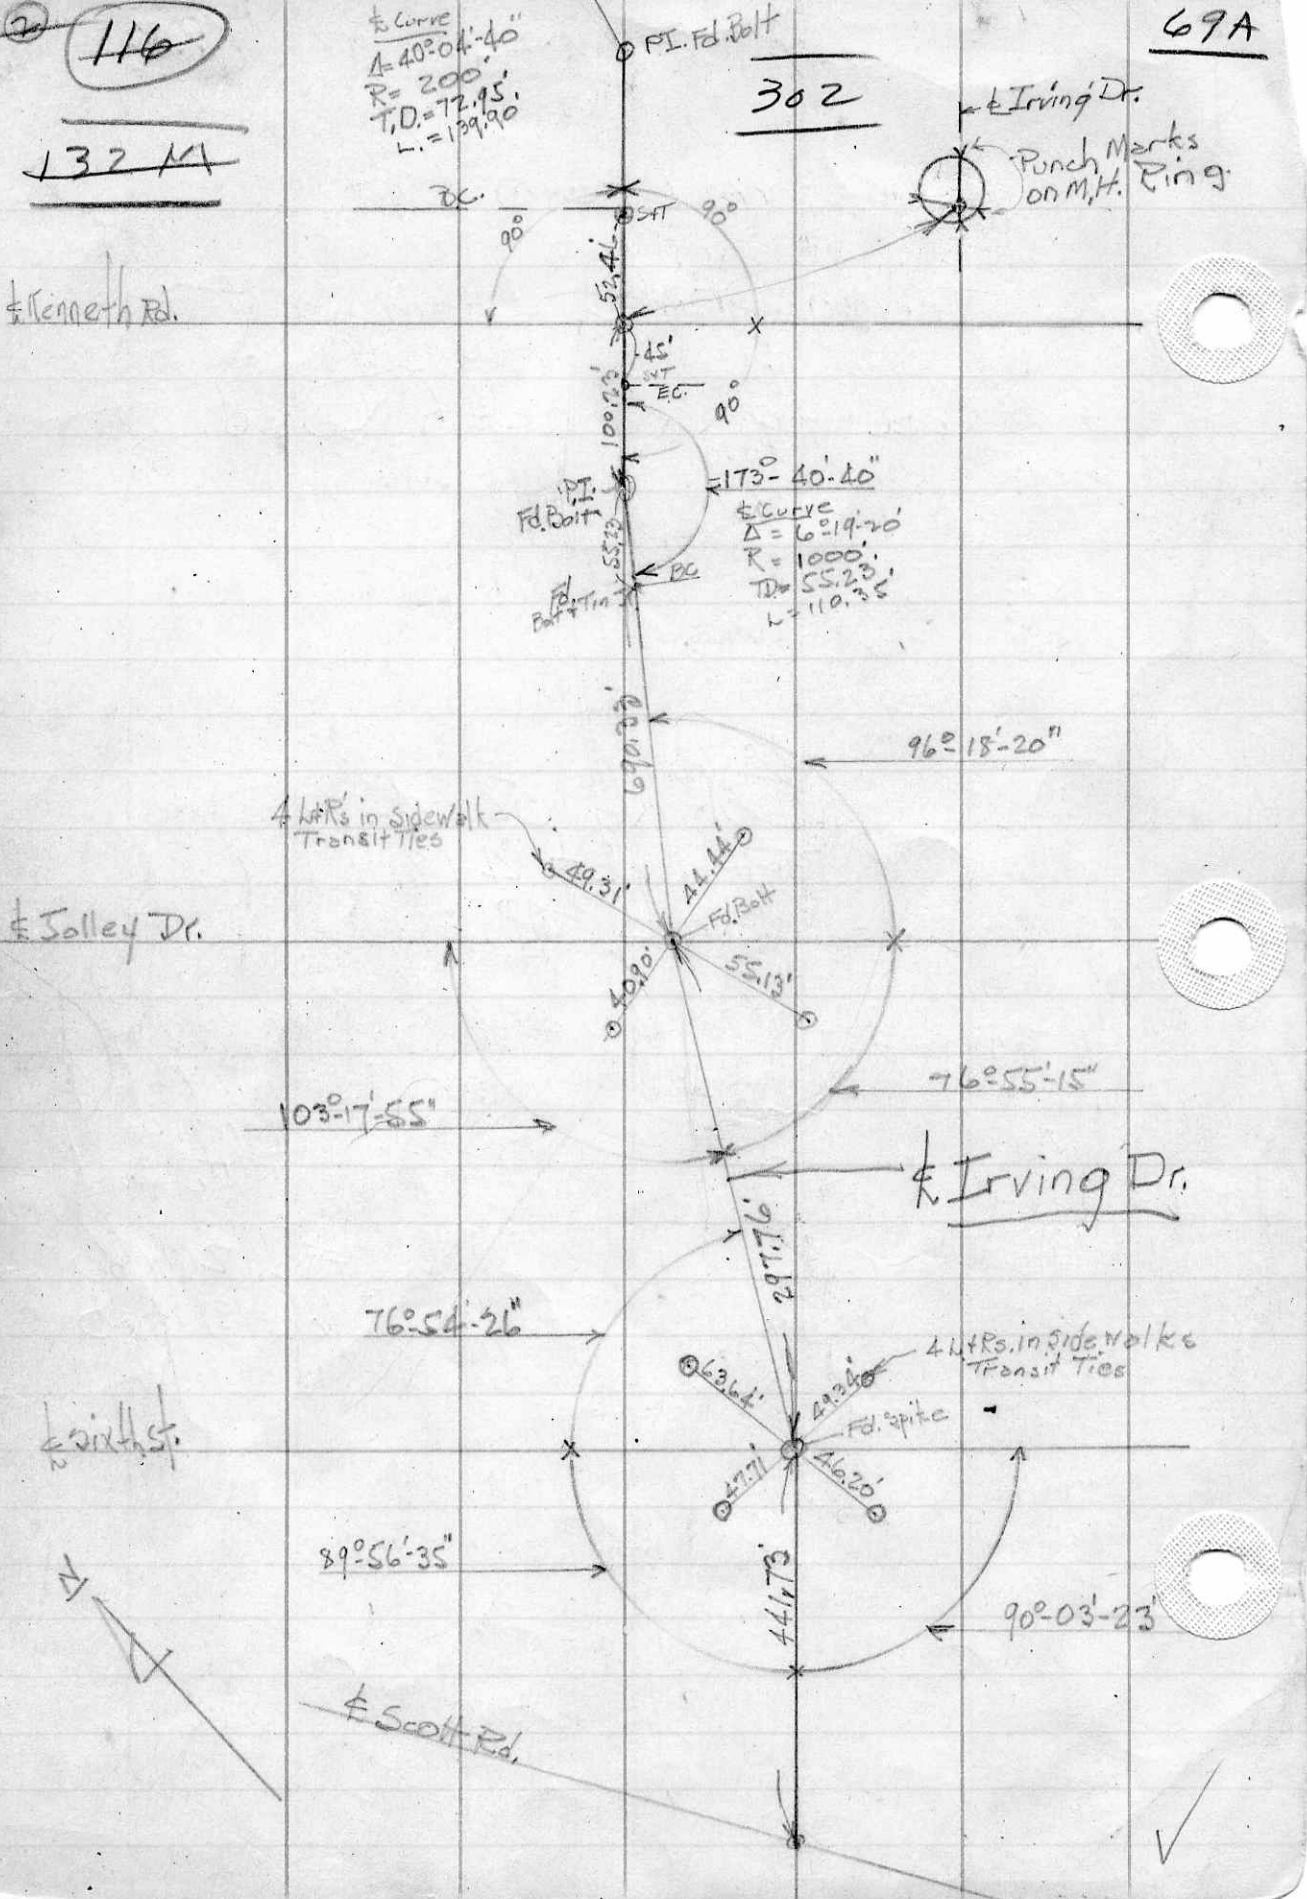 2
116
132 M
69A
302
℄ Curve
Δ=40°-04'-40"
R= 200'
T.D.=72.95'
L.=139.90
P.I. Fd. Bolt
℄ Irving Dr.
Punch Marks
on M.H. Ring
B.C.
90°
S&T
90°
52.46
℄ Kenneth Rd.
.45'
S&T
E.C.
90°
100.23'
P.I.
Fd. Bolt
=173°-40'-40"
℄ Curve
Δ= 6°-19'-20"
R= 1000'
T.D.= 55.23'
L=110.35'
55.23
BC
Fd.
Bolt & Tin
690.33'
96°-18'-20"
4 L&R's in Sidewalk
Transit Ties
49.31'
44.44'
Fd. Bolt
℄ Jolley Dr.
40.90'
55.13'
76°-55'-15"
103°-17'-55"
℄ Irving Dr.
297.76'
76°-54'-26"
4 L&Rs. in Sidewalks
Transit Ties
63.64'
49.34'
Fd. Spike
℄ Sixth St.
47.71'
46.20'
89°-56'-35"
441.73'
90°-03'-23'
℄ Scott Rd.